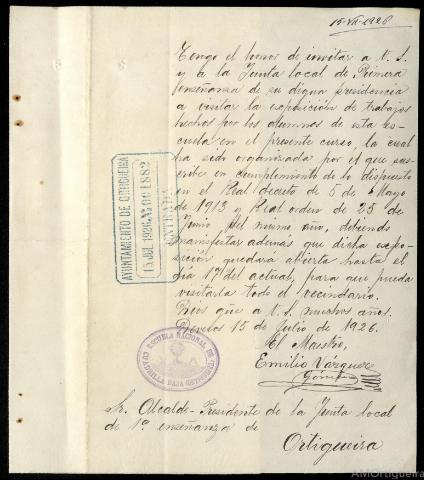 15-VII-1926
Tengo el honor de invitar a V. S.
y a la Junta local de Primera
enseñanza de su digna presidencia
a visitar la exposición de trabajos
hechos por los alumnos de esta es-
cuela en el presente curso, la cual
ha sido organizada por el que sus-
cribe en cumplimento de lo dispuesto
en el Real decreto de 5 de Mayo
de 1913 y Real orden de 25 de
Junio del mismo año, debiendo
manifestar además que dicha expo-
sición quedará abierta hasta el
día 17 del actual, para que pueda
visitarla todo el vecindario.
Dios gue a V. S. muchos años.
15 de Julio de 1926.
El Maestro,
Emilio Vázquez
Gómez
AYUNTAMIENTO DE ORTIGUEIRA
15 JUL 1926 No 001882
ENTRADA
ESCUELA NACIONAL DE
CUADRILLA BAJA (ORTIGUEIRA)
Sr. Alcalde-Presidente de la Junta local
de 1ª enseñanza de
Ortigueira
AMOrtigueira